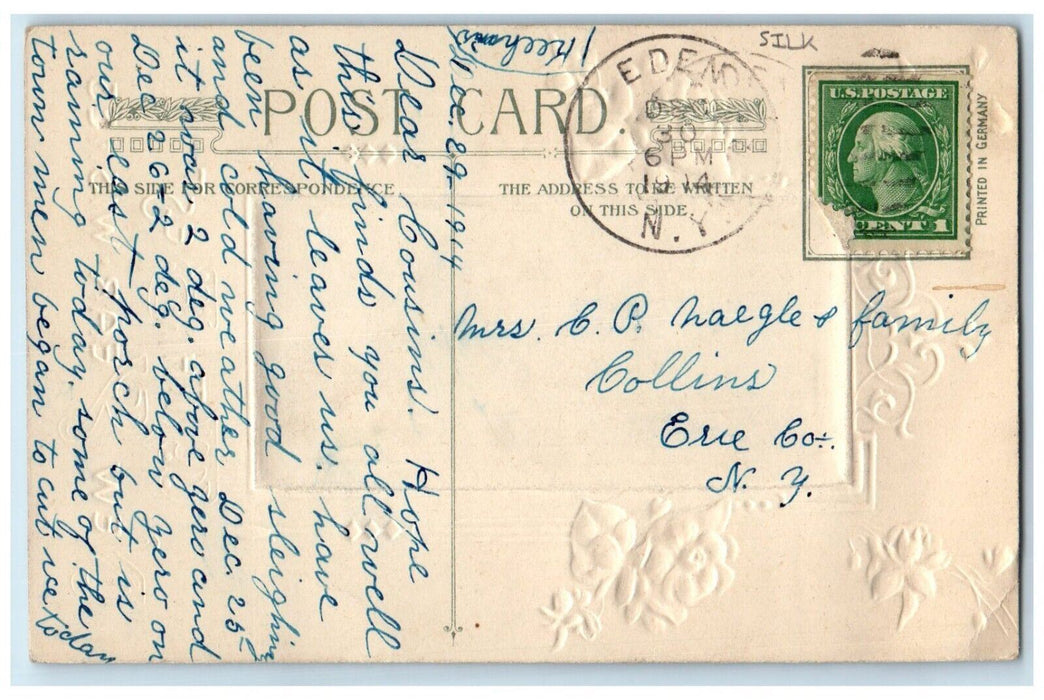 SILK
POST CARD.
THIS SIDE FOR CORRESPONDENCE
THE ADDRESS TO BE WRITTEN
ON THIS SIDE
EDEN
30
6 PM
1914
N.Y.
U.S. POSTAGE
CENT 1
PRINTED IN GERMANY
Dec. 29 1914
Dear Cousins. Hope
this finds you all well
as it leaves us. have
been having good sleighing
and cold weather Dec. 25
it was 2 deg. above zero and
Dec 26-2 deg. below zero on
our east porch but is
raining today. some of the
town men began to cut ice today
Mrs. C. P. Naegle & family
Collins
Erie Co.
N. Y.